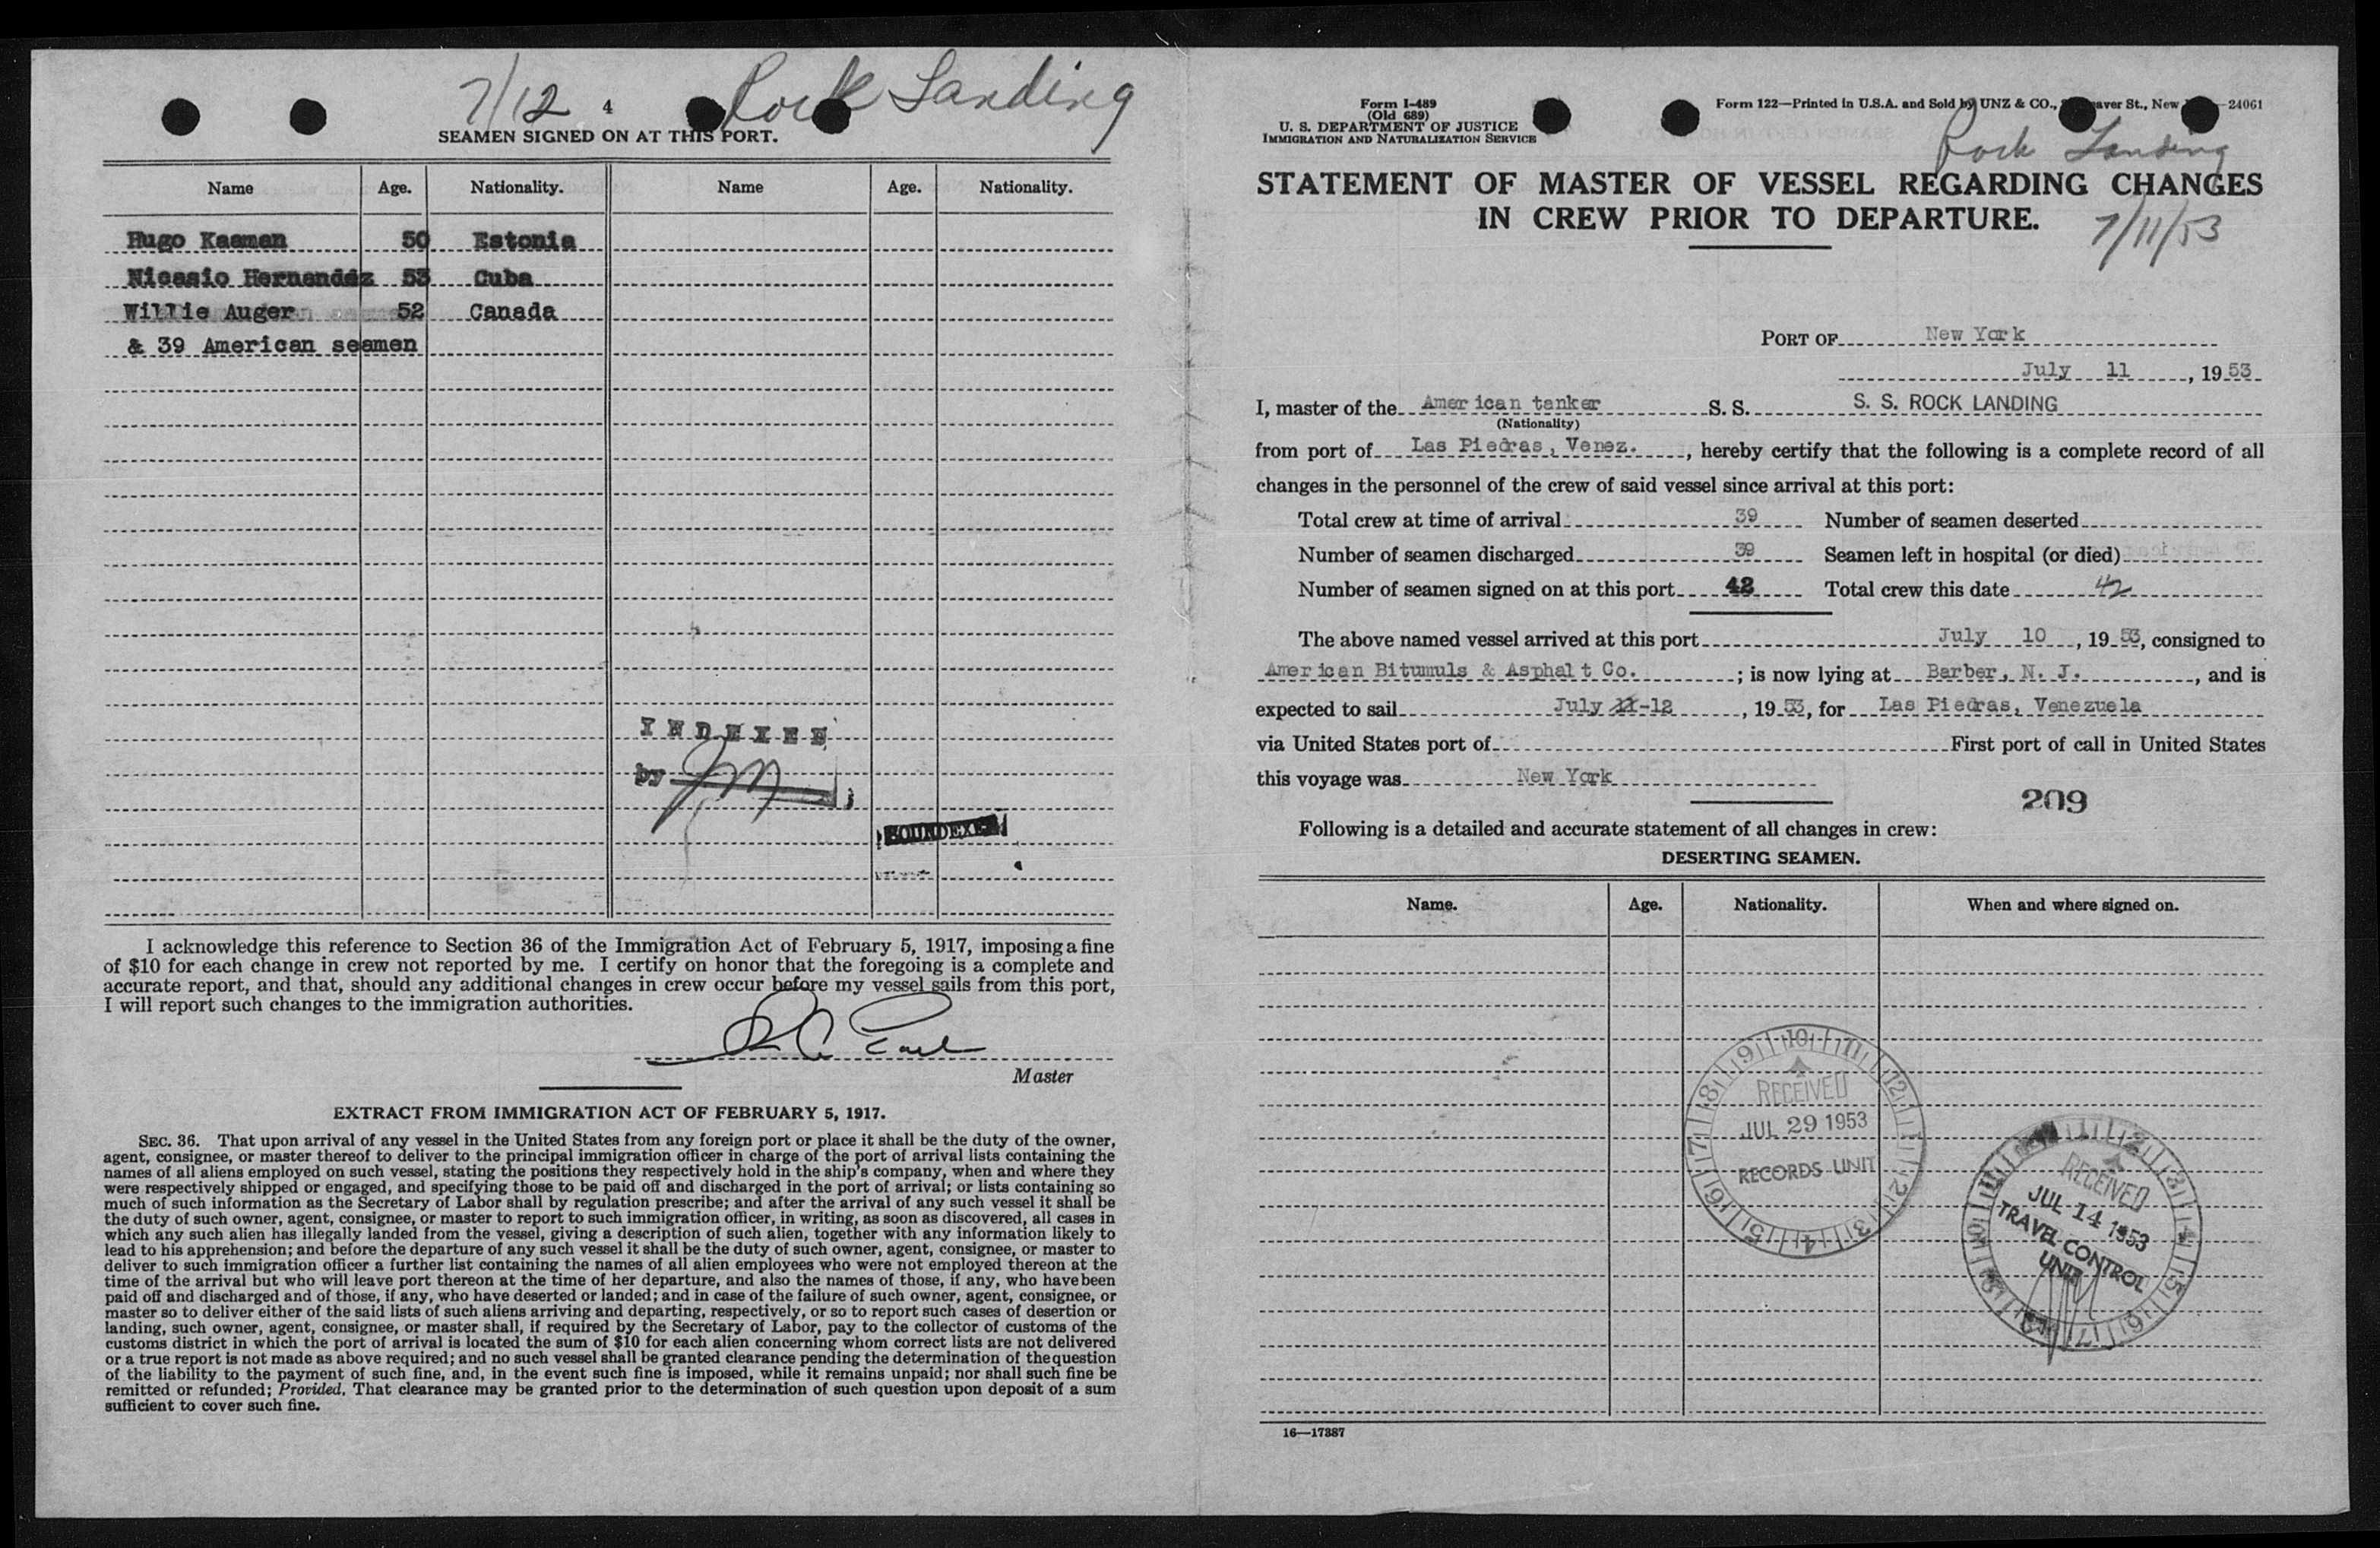 7/12 4 Rock Landing
SEAMEN SIGNED ON AT THIS PORT.
Name Age. Nationality. Name Age. Nationality.
Hugo Kaaman 50 Estonia
Nicasio Hernandez 53 Cuba
Willie Auger 52 Canada
& 39 American seamen
INDEXED
by
SOUNDEXED
I acknowledge this reference to Section 36 of the Immigration Act of February 5, 1917, imposing a fine
of $10 for each change in crew not reported by me. I certify on honor that the foregoing is a complete and
accurate report, and that, should any additional changes in crew occur before my vessel sails from this port,
I will report such changes to the immigration authorities.
Master
EXTRACT FROM IMMIGRATION ACT OF FEBRUARY 5, 1917.
SEC. 36. That upon arrival of any vessel in the United States from any foreign port or place it shall be the duty of the owner,
agent, consignee, or master thereof to deliver to the principal immigration officer in charge of the port of arrival lists containing the
names of all aliens employed on such vessel, stating the positions they respectively hold in the ship's company, when and where they
were respectively shipped or engaged, and specifying those to be paid off and discharged in the port of arrival; or lists containing so
much of such information as the Secretary of Labor shall by regulation prescribe; and after the arrival of any such vessel it shall be
the duty of such owner, agent, consignee, or master to report to such immigration officer, in writing, as soon as discovered, all cases in
which any such alien has illegally landed from the vessel, giving a description of such alien, together with any information likely to
lead to his apprehension; and before the departure of any such vessel it shall be the duty of such owner, agent, consignee, or master to
deliver to such immigration officer a further list containing the names of all alien employees who were not employed thereon at the
time of the arrival but who will leave port thereon at the time of her departure, and also the names of those, if any, who have been
paid off and discharged and of those, if any, who have deserted or landed; and in case of the failure of such owner, agent, consignee, or
master so to deliver either of the said lists of such aliens arriving and departing, respectively, or so to report such cases of desertion or
landing, such owner, agent, consignee, or master shall, if required by the Secretary of Labor, pay to the collector of customs of the
customs district in which the port of arrival is located the sum of $10 for each alien concerning whom correct lists are not delivered
or a true report is not made as above required; and no such vessel shall be granted clearance pending the determination of the question
of the liability to the payment of such fine, and, in the event such fine is imposed, while it remains unpaid; nor shall such fine be
remitted or refunded; Provided, That clearance may be granted prior to the determination of such question upon deposit of a sum
sufficient to cover such fine.
Form I-489
(Old 689)
U. S. DEPARTMENT OF JUSTICE
IMMIGRATION AND NATURALIZATION SERVICE
Form 122—Printed in U.S.A. and Sold by UNZ & CO., St., New —24061
Rock Landing
STATEMENT OF MASTER OF VESSEL REGARDING CHANGES
IN CREW PRIOR TO DEPARTURE.
7/11/53
PORT OF New York
July 11, 1953
I, master of the American tanker S. S. S. S. ROCK LANDING
(Nationality)
from port of Las Piedras, Venez., hereby certify that the following is a complete record of all
changes in the personnel of the crew of said vessel since arrival at this port:
Total crew at time of arrival 39 Number of seamen deserted
Number of seamen discharged 39 Seamen left in hospital (or died)
Number of seamen signed on at this port 42 Total crew this date 42
The above named vessel arrived at this port July 10, 1953, consigned to
American Bitumuls & Asphalt Co.; is now lying at Barber, N. J., and is
expected to sail July 11-12, 1953, for Las Piedras, Venezuela
via United States port of First port of call in United States
this voyage was New York
209
Following is a detailed and accurate statement of all changes in crew:
DESERTING SEAMEN.
Name. Age. Nationality. When and where signed on.
RECEIVED
JUL 29 1953
RECORDS UNIT
RECEIVED
JUL 14 1953
TRAVEL CONTROL
UNIT
16—17387